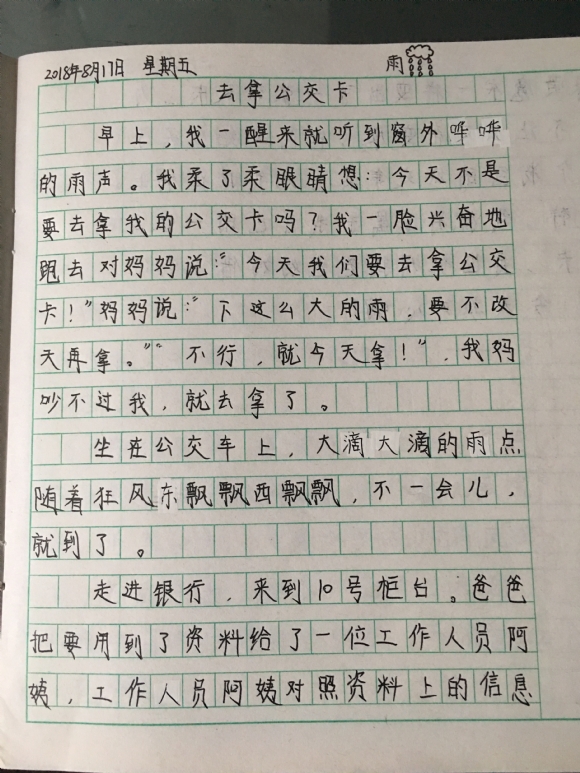 2018年8月17日 星期五 雨
去拿公交卡
早上，我一醒来就听到窗外哗哗
的雨声。我柔了柔眼睛想：今天不是
要去拿我的公交卡吗？我一脸兴奋地
跑去对妈妈说：“今天我们要去拿公交
卡！”妈妈说：“下这么大的雨，要不改
天再拿。”“不行，就今天拿！”，我妈
吵不过我，就去拿了。
坐在公交车上，大滴大滴的雨点
随着狂风东飘飘西飘飘，不一会儿，
就到了。
走进银行，来到10号柜台。爸爸
把要用到了资料给了一位工作人员阿
姨，工作人员阿姨对照资料上的信息